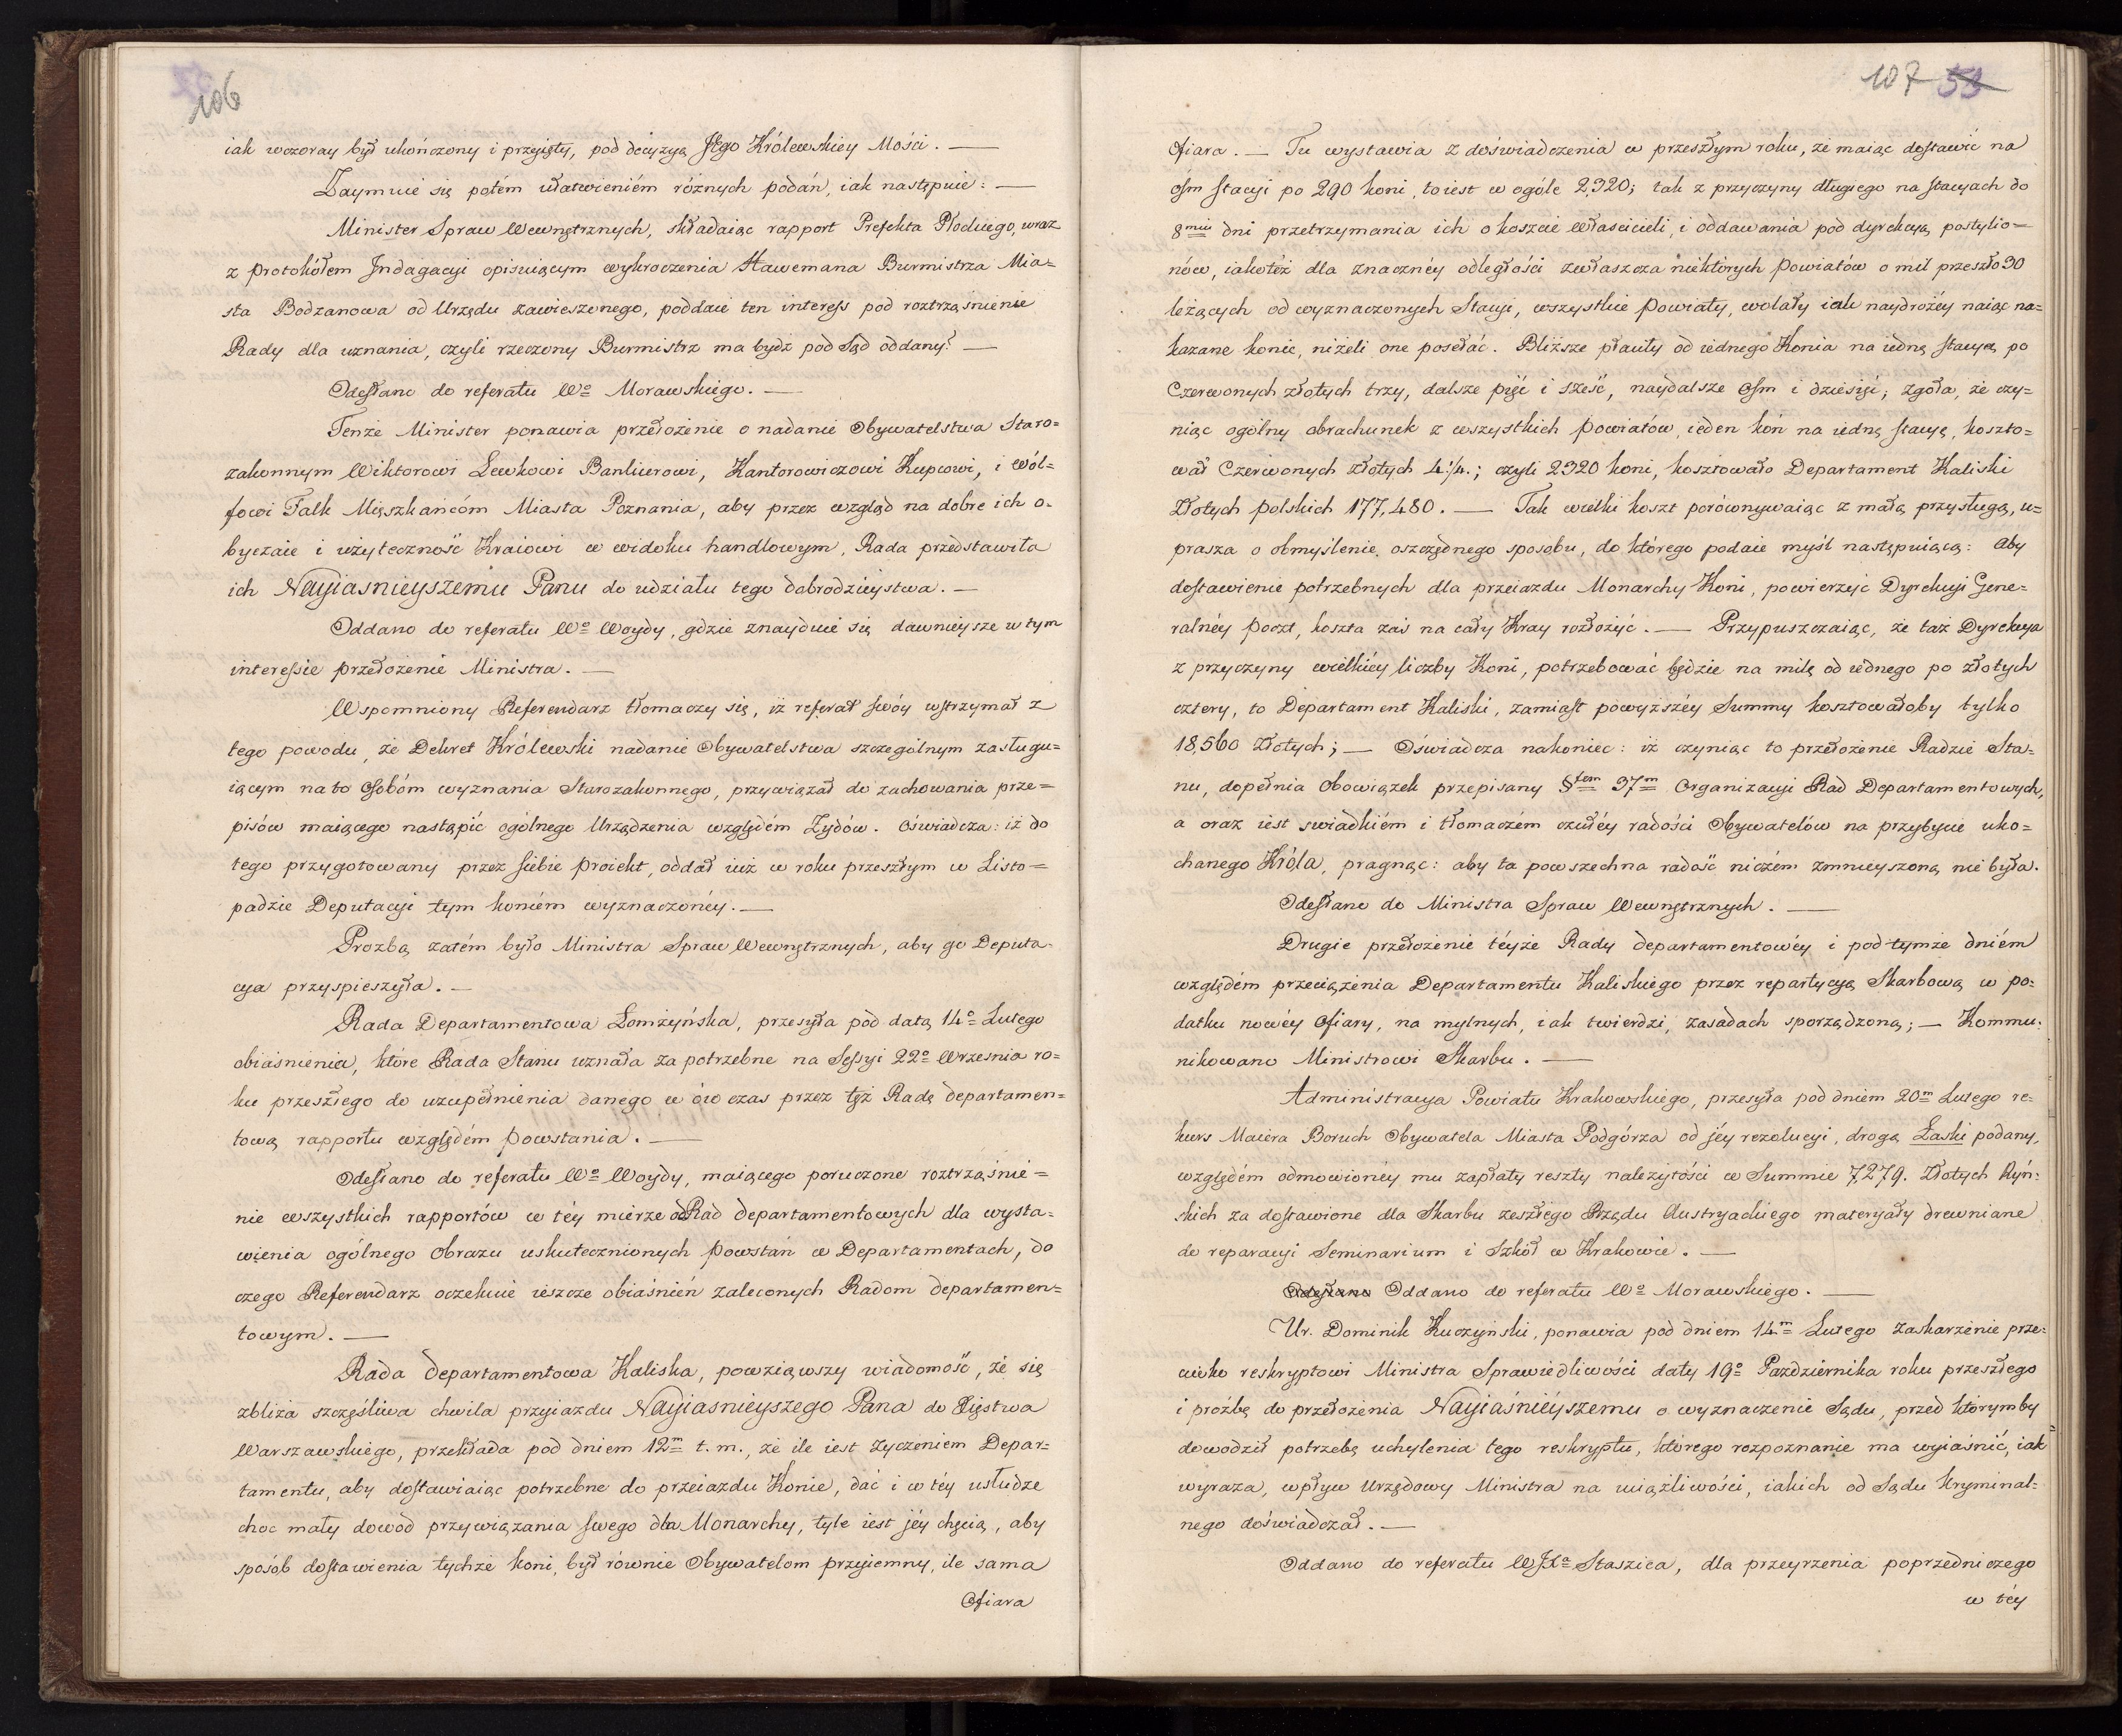 106
iak wczoray był ukończony i przyięty, pod decyzyą Jego Królewskiey Mości. —
Zaymuie się potém ułatwieniém różnych podań, iak następuie: —
Minister Spraw Wewnętrznych, składaiąc rapport Prefekta Płockiego, wraz
z protokółem Jndagacyi opisuiącym wykroczenia Hawemana Burmistrza Mia=
sta Bodzanowa od Urzędu zawieszonego, poddaie ten interess pod roztrząsnienie
Rady dla uznania, czyli rzeczony Burmistrz ma bydz pod Sąd oddany? —
Odesłano do referatu Wo Morawskiego. —
Tenże Minister ponawia przełożenie o nadanie Obywatelstwa Staro=
zakonnym Wiktorowi Lewkowi Bankierowi, Kantorowiczowi Kupcowi, i Wol=
fowi Falk Mięszkańcóm Miasta Poznania, aby przez wzgląd na dobre ich o.
byczaie i użyteczność Kraiowi w widoku handlowym, Rada przedstawiła
ich Nayiasnieyszemu Panu do udziału tego dobrodzieystwa. —
Oddano do referatu Wo Woydy, gdzie znayduie się dawnieysze w tym
interessie przełożenie Ministra. —
Wspomniony Referendarz tłomaczy się, iż referat swóy wstrzymał z
tego powodu, że Dekret Królewski nadanie Obywatelstwa szczególnym zasługu=
iącym na to Osobóm wyznania Starozakonnego, przywiązał do zachowania prze=
pisów maiącego nastąpić ogólnego Urządzenia względém Żydów. Oświadcza: iż do
tego przygotowany przez siebie proiekt, oddał iuż w roku przeszłym w Listo=
padzie Deputacyi tym koniém wyznaczonéy. —
Prozbą zatém było Ministra Spraw Wewnętrznych, aby go Deputa.
cya przyspieszyła. —
Rada Departamentowa Łomżyńska, przesyła pod datą 14o Lutego
obiaśnienia, które Rada Stanu uznała za potrzebne na Sessyi 22o Wrzesnia ro=
ku przeszłego do uzupełnienia danego w ów czas przez tęż Radę departamen=
tową rapportu względém powstania. —
Odesłano do referatu Wo Woydy, maiącego poruczone roztrząśnie=
nie wszystkich rapportów w téy mierze od Rad departamentowych dla wysta=
wienia ogólnego obrazu uskutecznionych powstań w Departamentach, do
czego Referendarz oczekuie ieszcze obiaśnień zaleconych Radom departamen=
towym. —
Rada departamentowa Kaliska, powziąwszy wiadomość, że się
zbliża szczęśliwa chwila przyiazdu Nayiasnieyszego Pana do Xięstwa
Warszawskiego, przekłada pod dniem 12m t. m., że ile iest życzeniem Depar=
tamentu, aby dostawiaiąc potrzebne do przeiazdu Konie, dać i w téy usłudze
choc mały dowod przywiązania swego dla Monarchy, tyle iest jéy chęcią, aby
sposób dostawienia tychże koni, był równie Obywatelom przyiemny, ile sama
Ofiara
107 53
Ofiara. — Tu wystawia z doświadczenia w przeszłym roku, że maiąc dostawić na
ośm stacyi po 290 koni, to iest w ogóle 2,320; tak z przyczyny długiego na stacyach do
8miu dni przetrzymania ich o koszcie Właścicieli, i oddawania pod dyrekcyą postylio=
nów, iakotéż dla znacznéy odległości zwłaszcza niektórych powiatów o mil przeszło 30
leżących od wyznaczonych Stacyi, wszystkie powiaty, wolały iak naydrożéy naiąc na=
kazane konie, niżeli one posełać. Bliższe płaciły od iednego Konia na iedną stacyą po
Czerwonych złotych trzy, dalsze pięć i sześć, naydalsze Ośm i dziesięć; zgoła, że czy=
niąc ogólny obrachunek z wszystkich powiatów, ieden koń na iedną stacyę, koszto=
wał Czerwonych złotych 4 1/4.; czyli 2320 koni, kosztowało Departament Kaliski
Złotych polskich 177,480. — Tak wielki koszt porównywaiąc z małą przysługą, u=
prasza o obmyślenie oszczędnego sposobu, do którego podaie myśl następuiącą: Aby
dostawienie potrzebnych dla przeiazdu Monarchy Koni, powierzyć Dyrekcyi Gene=
ralnéy poczt, koszta zaś na cały Kray rozłożyć. — Przypuszczaiąc, że taż Dyrekcya
z przyczyny wielkiéy liczby Koni, potrzebować będzie na milę od iednego po złotych
cztery, to Departament Kaliski, zamiast powyższéy Summy kosztowałoby tylko
18,560 złotych; — Oświadcza nakoniec: iż czyniąc to przełożenie Radzie Sta=
nu, dopełnia obowiązek przepisany §tem 37m Organizacyi Rad Departamentowych,
a oraz iest swiadkiém i tłomaczém czułéy radości Obywatelów na przybycie uko=
chanego Króla, pragnąc: aby ta powszechna radość niczém zmnieyszoną nie była.
Odesłano do Ministra Spraw Wewnętrznych. —
Drugie przełożenie téyże Rady departamentowéy i pod tymże dniém
względém przeciążenia Departamentu Kaliskiego przez repartycyą Skarbową w po=
datku nowéy Ofiary, na mylnych, iak twierdzi, zasadach sporządzoną; — Kommu=
nikowano Ministrowi Skarbu. —
Administracya Powiatu Krakowskiego, przesyła pod dniem 20m Lutego re=
kurs Maiera Boruch Obywatela Miasta Podgórza od jéy rezolucyi, drogą Łaski podany,
względém odmowionéy mu zapłaty reszty należytości w Summie 7,279. Złotych Ryń=
skich za dostawione dla Skarbu zeszłego Rządu Austryackiego materyały drewniane
do reparacyi Seminarium i Szkół w Krakowie. —
Odesłano Oddano do referatu Wo Morawskiego. —
Ur. Dominik Kuczyński, ponawia pod dniem 14m Lutego zaskarżenie prze=
ciwko reskryptowi Ministra Sprawiedliwości daty 19o Pazdziernika roku przeszłego
i prózbę do przełożenia Nayiaśniéyszemu o wyznaczenie Sądu, przed którymby
dowodził potrzebę uchylenia tego reskryptu, którego rozpoznanie ma wyiaśnić, iak
wyraża, wpływ Urzędowy Ministra na uciążliwości, iakich od Sądu Kryminal=
nego doświadczał. —
Oddano do referatu WJXa Staszica, dla przeyrzenia poprzedniczego
w téy